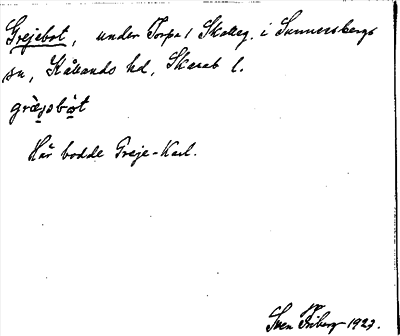 Grejebot, under Torpa 1 Skatteg. i Sunnersbergs
sn, Kållands hd, Skarab l.
græ̀jəbòt
Här bodde Greje-Karl.
Sven Friberg 1927.